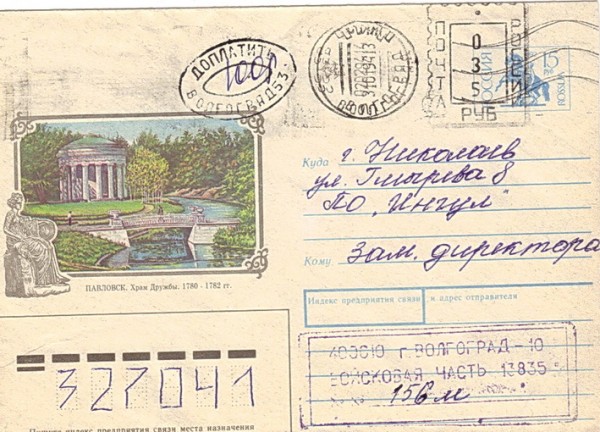 ДОПЛАТИТЬ
ВОЛГОГРАД 53
ПОЧТА
РОССИИ
0
3
5
РУБ
15
РОССИЯ
Куда г. Николаев
ул. Гмырева 8
ПО „Ингул"
Кому зам. директора
ПАВЛОВСК. Храм Дружбы. 1780 - 1782 гг.
Индекс предприятия связи и адрес отправителя
г. ВОЛГОГРАД - 10
ВОЙСКОВАЯ ЧАСТЬ 13835
156 м
327041
индекс предприятия связи места назначения